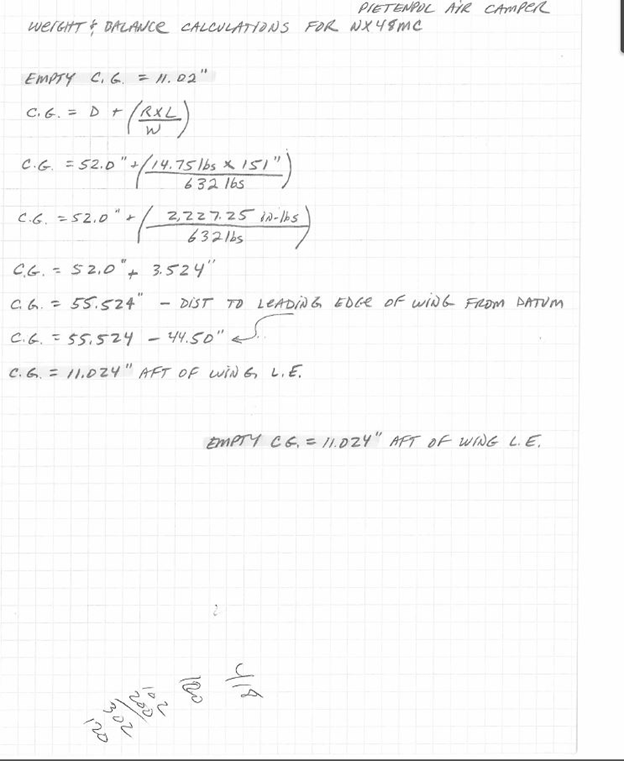 PIETENPOL AIR CAMPER
WEIGHT & BALANCE CALCULATIONS FOR NX48MC
EMPTY C.G. = 11.02"
C.G. = D + (RXL / W)
C.G. = 52.0" + (14.75 lbs x 151" / 632 lbs)
C.G. = 52.0" + (2,227.25 in-lbs / 632 lbs)
C.G. = 52.0" + 3.524"
C.G. = 55.524" - DIST TO LEADING EDGE OF WING FROM DATUM
C.G. = 55.524 - 44.50"
C.G. = 11.024" AFT OF WING L.E.
EMPTY C.G. = 11.024" AFT OF WING L.E.
102
200
302
120